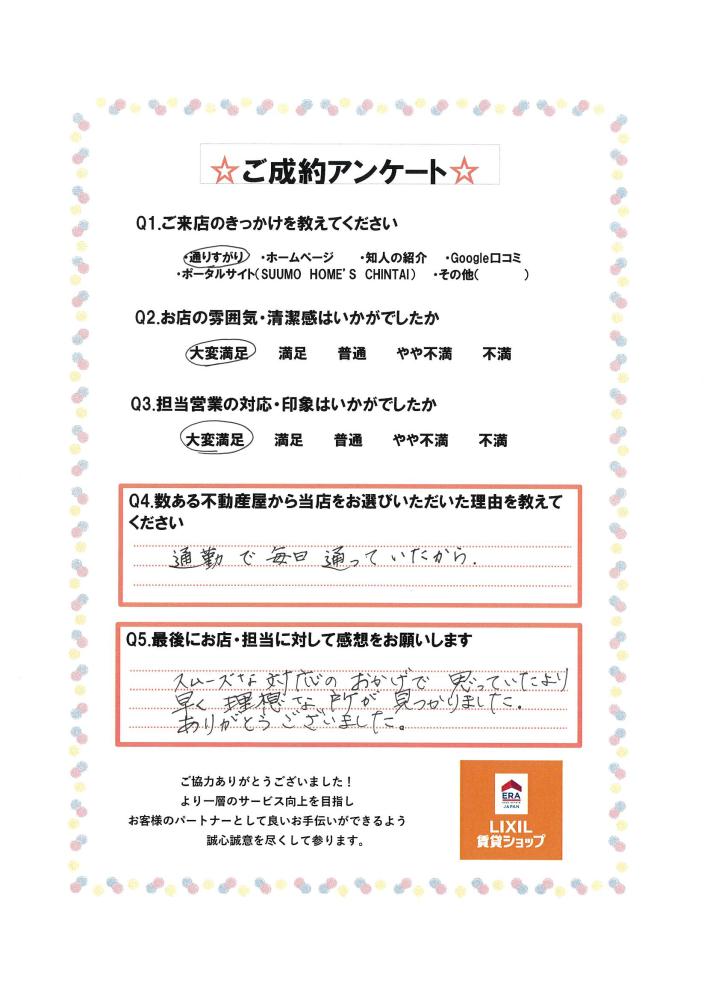 ☆ご成約アンケート☆
Q1.ご来店のきっかけを教えてください
・通りすがり ・ホームページ ・知人の紹介 ・Google口コミ
・ポータルサイト(SUUMO HOME'S CHINTAI) ・その他( )
Q2.お店の雰囲気・清潔感はいかがでしたか
大変満足 満足 普通 やや不満 不満
Q3.担当営業の対応・印象はいかがでしたか
大変満足 満足 普通 やや不満 不満
Q4.数ある不動産屋から当店をお選びいただいた理由を教えて
ください
通勤で毎日通っていたから.
Q5.最後にお店・担当に対して感想をお願いします
スムーズな対応のおかげで思っていたより
早く理想な所が見つかりました.
ありがとうございました。
ご協力ありがとうございました！
より一層のサービス向上を目指し
お客様のパートナーとして良いお手伝いができるよう
誠心誠意を尽くして参ります。
ERA
JAPAN
LIXIL
賃貸ショップ